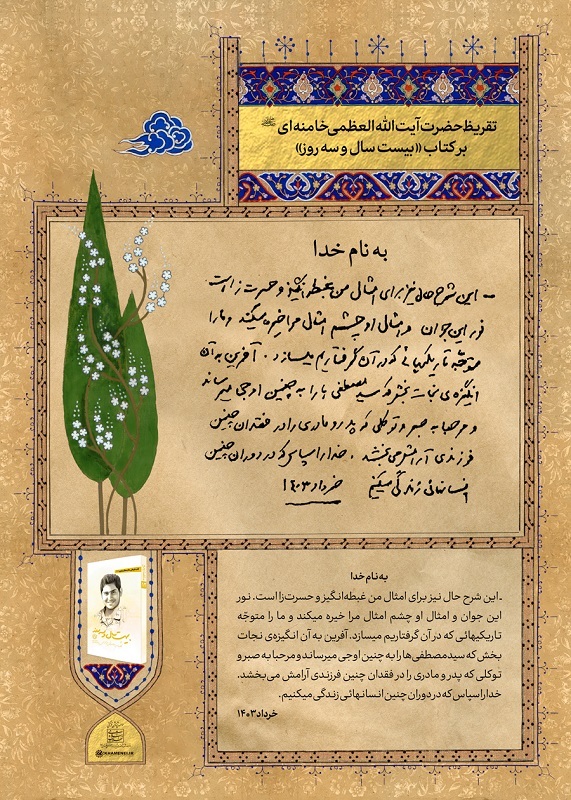 تقریظ حضرت آیت الله العظمی خامنه‌ای
بر کتاب «بیست سال و سه روز»
به نام خدا
- این شرح حال نیز برای امثال من غبطه‌انگیز و حسرت‌زا است.
نور این جوان و امثال او چشم امثال مرا خیره میکند و ما را
متوجّه تاریکیهائی که در آن گرفتاریم میسازد. آفرین به آن
انگیزه‌ی نجات بخش که سید مصطفی ها را به چنین اوجی میرساند
و مرحبا به صبر و توکلی که پدر و مادری را در فقدان چنین
فرزندی آرامش می بخشد. خدا را سپاس که در دوران چنین
انسانهائی زندگی میکنیم خرداد ۱۴۰۳
به نام خدا
ـ این شرح حال نیز برای امثال من غبطه‌انگیز و حسرت‌زا است. نور
این جوان و امثال او چشم امثال مرا خیره میکند و ما را متوجّه
تاریکیهائی که در آن گرفتاریم میسازد. آفرین به آن انگیزه‌ی نجات
بخش که سیدمصطفی‌ها را به چنین اوجی میرساند و مرحبا به صبر و
توکلی که پدر و مادری را در فقدان چنین فرزندی آرامش می‌بخشد.
خدا را سپاس که در دوران چنین انسانهائی زندگی میکنیم.
خرداد ۱۴۰۳
بیست سال و سه روز
KHAMENEI.IR